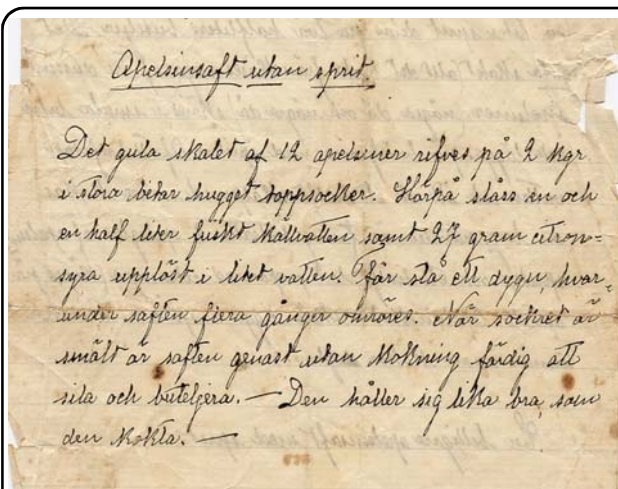 Apelsinsaft utan sprit.
Det gula skalet af 12 apelsiner rifves på 2 kgr
i stora bitar hugget toppsocker. Härpå slåss en och
en half liter friskt källvatten samt 27 gram citron=
syra upplöst i litet vatten. Får stå ett dygn, hvar-
under saften flera gånger omröres. När sockret är
smält är saften genast utan kokning färdig att
sila och buteljera. — Den håller sig lika bra som
den kokta. —